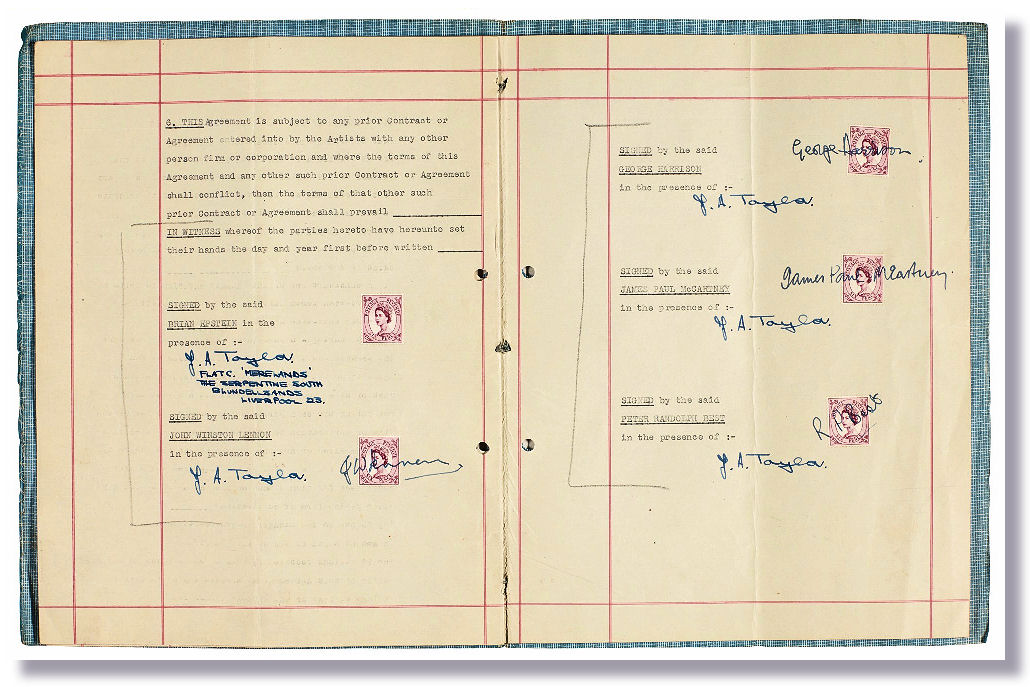 6. THIS Agreement is subject to any prior Contract or
Agreement entered into by the Artists with any other
person firm or corporation and where the terms of this
Agreement and any other such prior Contract or Agreement
shall conflict, then the terms of that other such
prior Contract or Agreement shall prevail
IN WITNESS whereof the parties hereto have hereunto set
their hands the day and year first before written
SIGNED by the said
BRIAN EPSTEIN in the
presence of :-
J. A. Taylor.
FLAT C. 'MERELANDS'
THE SERPENTINE SOUTH
BLUNDELLSANDS
LIVERPOOL 23.
SIGNED by the said
JOHN WINSTON LENNON
in the presence of :-
J. A. Taylor.
J W Lennon
SIGNED by the said
GEORGE HARRISON
in the presence of :-
George Harrison.
J. A. Taylor.
SIGNED by the said
JAMES PAUL McCARTNEY
in the presence of :-
James Paul McCartney.
J. A. Taylor.
SIGNED by the said
PETER RANDOLPH BEST
in the presence of :-
R P Best
J. A. Taylor.